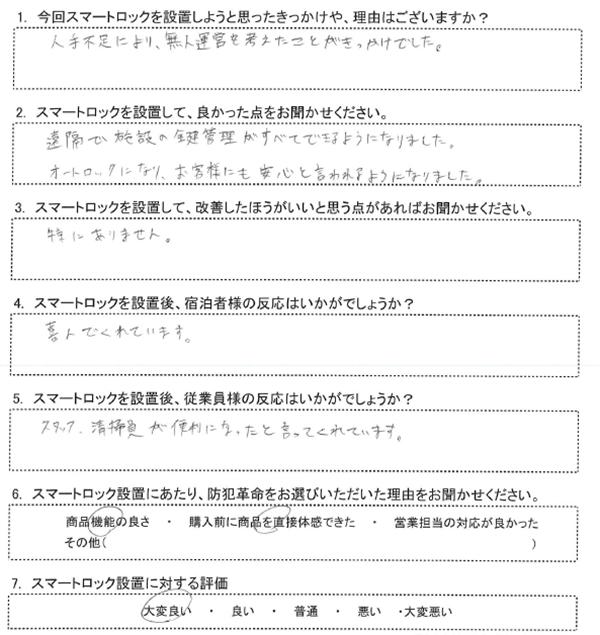 1. 今回スマートロックを設置しようと思ったきっかけや、理由はございますか？
人手不足により、無人運営を考えたことがきっかけでした。
2. スマートロックを設置して、良かった点をお聞かせください。
遠隔で施設の鍵管理がすべてできるようになりました。
オートロックになり、お客様にも安心と言われるようになりました。
3. スマートロックを設置して、改善したほうがいいと思う点があればお聞かせください。
特にありません。
4. スマートロックを設置後、宿泊者様の反応はいかがでしょうか？
喜んでくれています。
5. スマートロックを設置後、従業員様の反応はいかがでしょうか？
スタッフ、清掃員が便利になったと言ってくれています。
6. スマートロック設置にあたり、防犯革命をお選びいただいた理由をお聞かせください。
商品機能の良さ ・ 購入前に商品を直接体感できた ・ 営業担当の対応が良かった
その他( )
7. スマートロック設置に対する評価
大変良い ・ 良い ・ 普通 ・ 悪い ・大変悪い